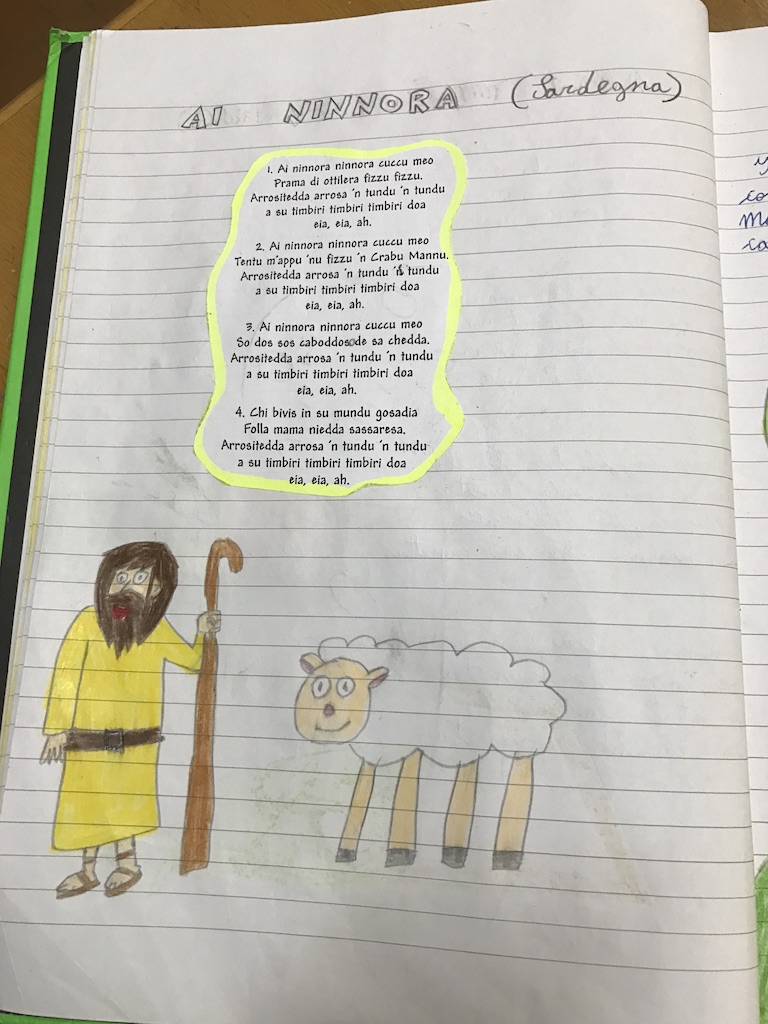 AI NINNORA (Sardegna)
1. Ai ninnora ninnora cuccu meo
Prama di ottilera fizzu fizzu.
Arrositedda arrosa 'n tundu 'n tundu
a su timbiri timbiri timbiri doa
eia, eia, ah.
2. Ai ninnora ninnora cuccu meo
Tentu m'appu 'nu fizzu 'n Crabu Mannu.
Arrositedda arrosa 'n tundu 'n tundu
a su timbiri timbiri timbiri doa
eia, eia, ah.
3. Ai ninnora ninnora cuccu meo
So dos sos caboddos de sa chedda.
Arrositedda arrosa 'n tundu 'n tundu
a su timbiri timbiri timbiri doa
eia, eia, ah.
4. Chi bivis in su mundu gosadia
Folla mama niedda sassaresa.
Arrositedda arrosa 'n tundu 'n tundu
a su timbiri timbiri timbiri doa
eia, eia, ah.